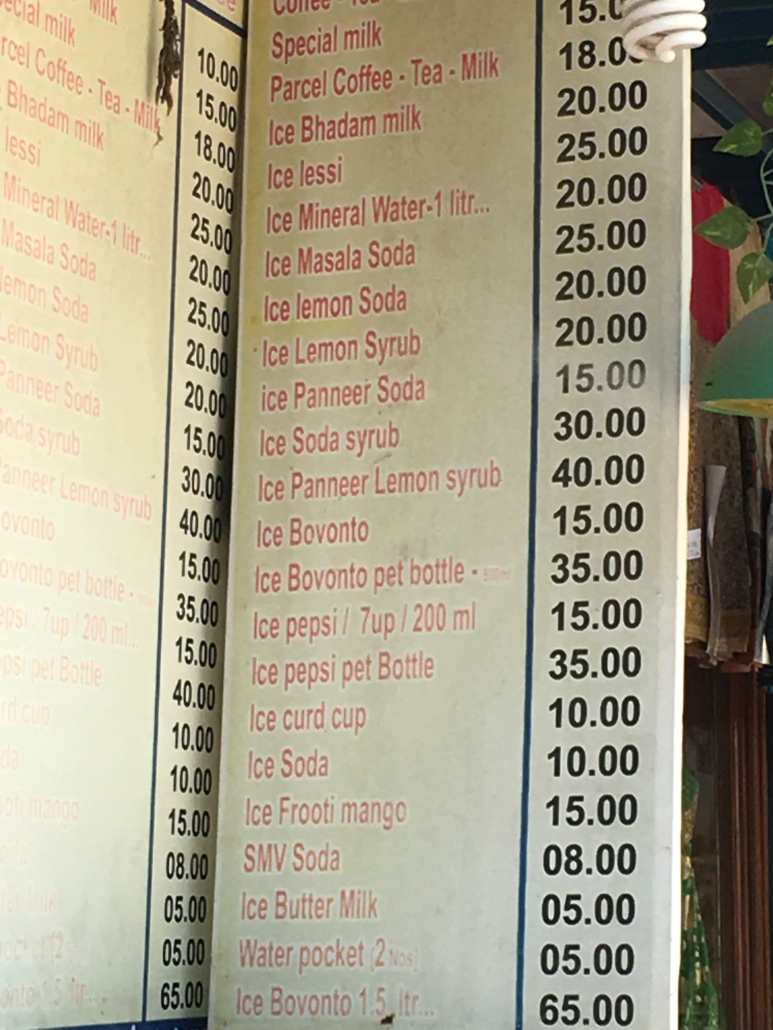 Milk 10.00
ecial milk 15.00
rcel Coffee - Tea - Milk 18.00
Bhadam milk 20.00
lessi 25.00
Mineral Water-1 litr... 20.00
Masala Soda 25.00
lemon Soda 20.00
Lemon Syrub 20.00
Panneer Soda 15.00
Soda syrub 30.00
anneer Lemon syrub 40.00
ovonto 15.00
ovonto pet bottle - 35.00
epsi / 7up / 200 ml... 15.00
epsi pet Bottle 40.00
rd cup 10.00
da 10.00
ooti mango 15.00
08.00
05.00
05.00
65.00
Coffee - Tea
Special milk 15.0
Parcel Coffee - Tea - Milk 18.0
Ice Bhadam milk 20.00
Ice lessi 25.00
Ice Mineral Water-1 litr... 20.00
Ice Masala Soda 25.00
Ice lemon Soda 20.00
Ice Lemon Syrub 20.00
ice Panneer Soda 15.00
Ice Soda syrub 30.00
Ice Panneer Lemon syrub 40.00
Ice Bovonto 15.00
Ice Bovonto pet bottle - 35.00
Ice pepsi / 7up / 200 ml 15.00
Ice pepsi pet Bottle 35.00
Ice curd cup 10.00
Ice Soda 10.00
Ice Frooti mango 15.00
SMV Soda 08.00
Ice Butter Milk 05.00
Water pocket [2 Nos] 05.00
Ice Bovonto 1.5 ltr... 65.00